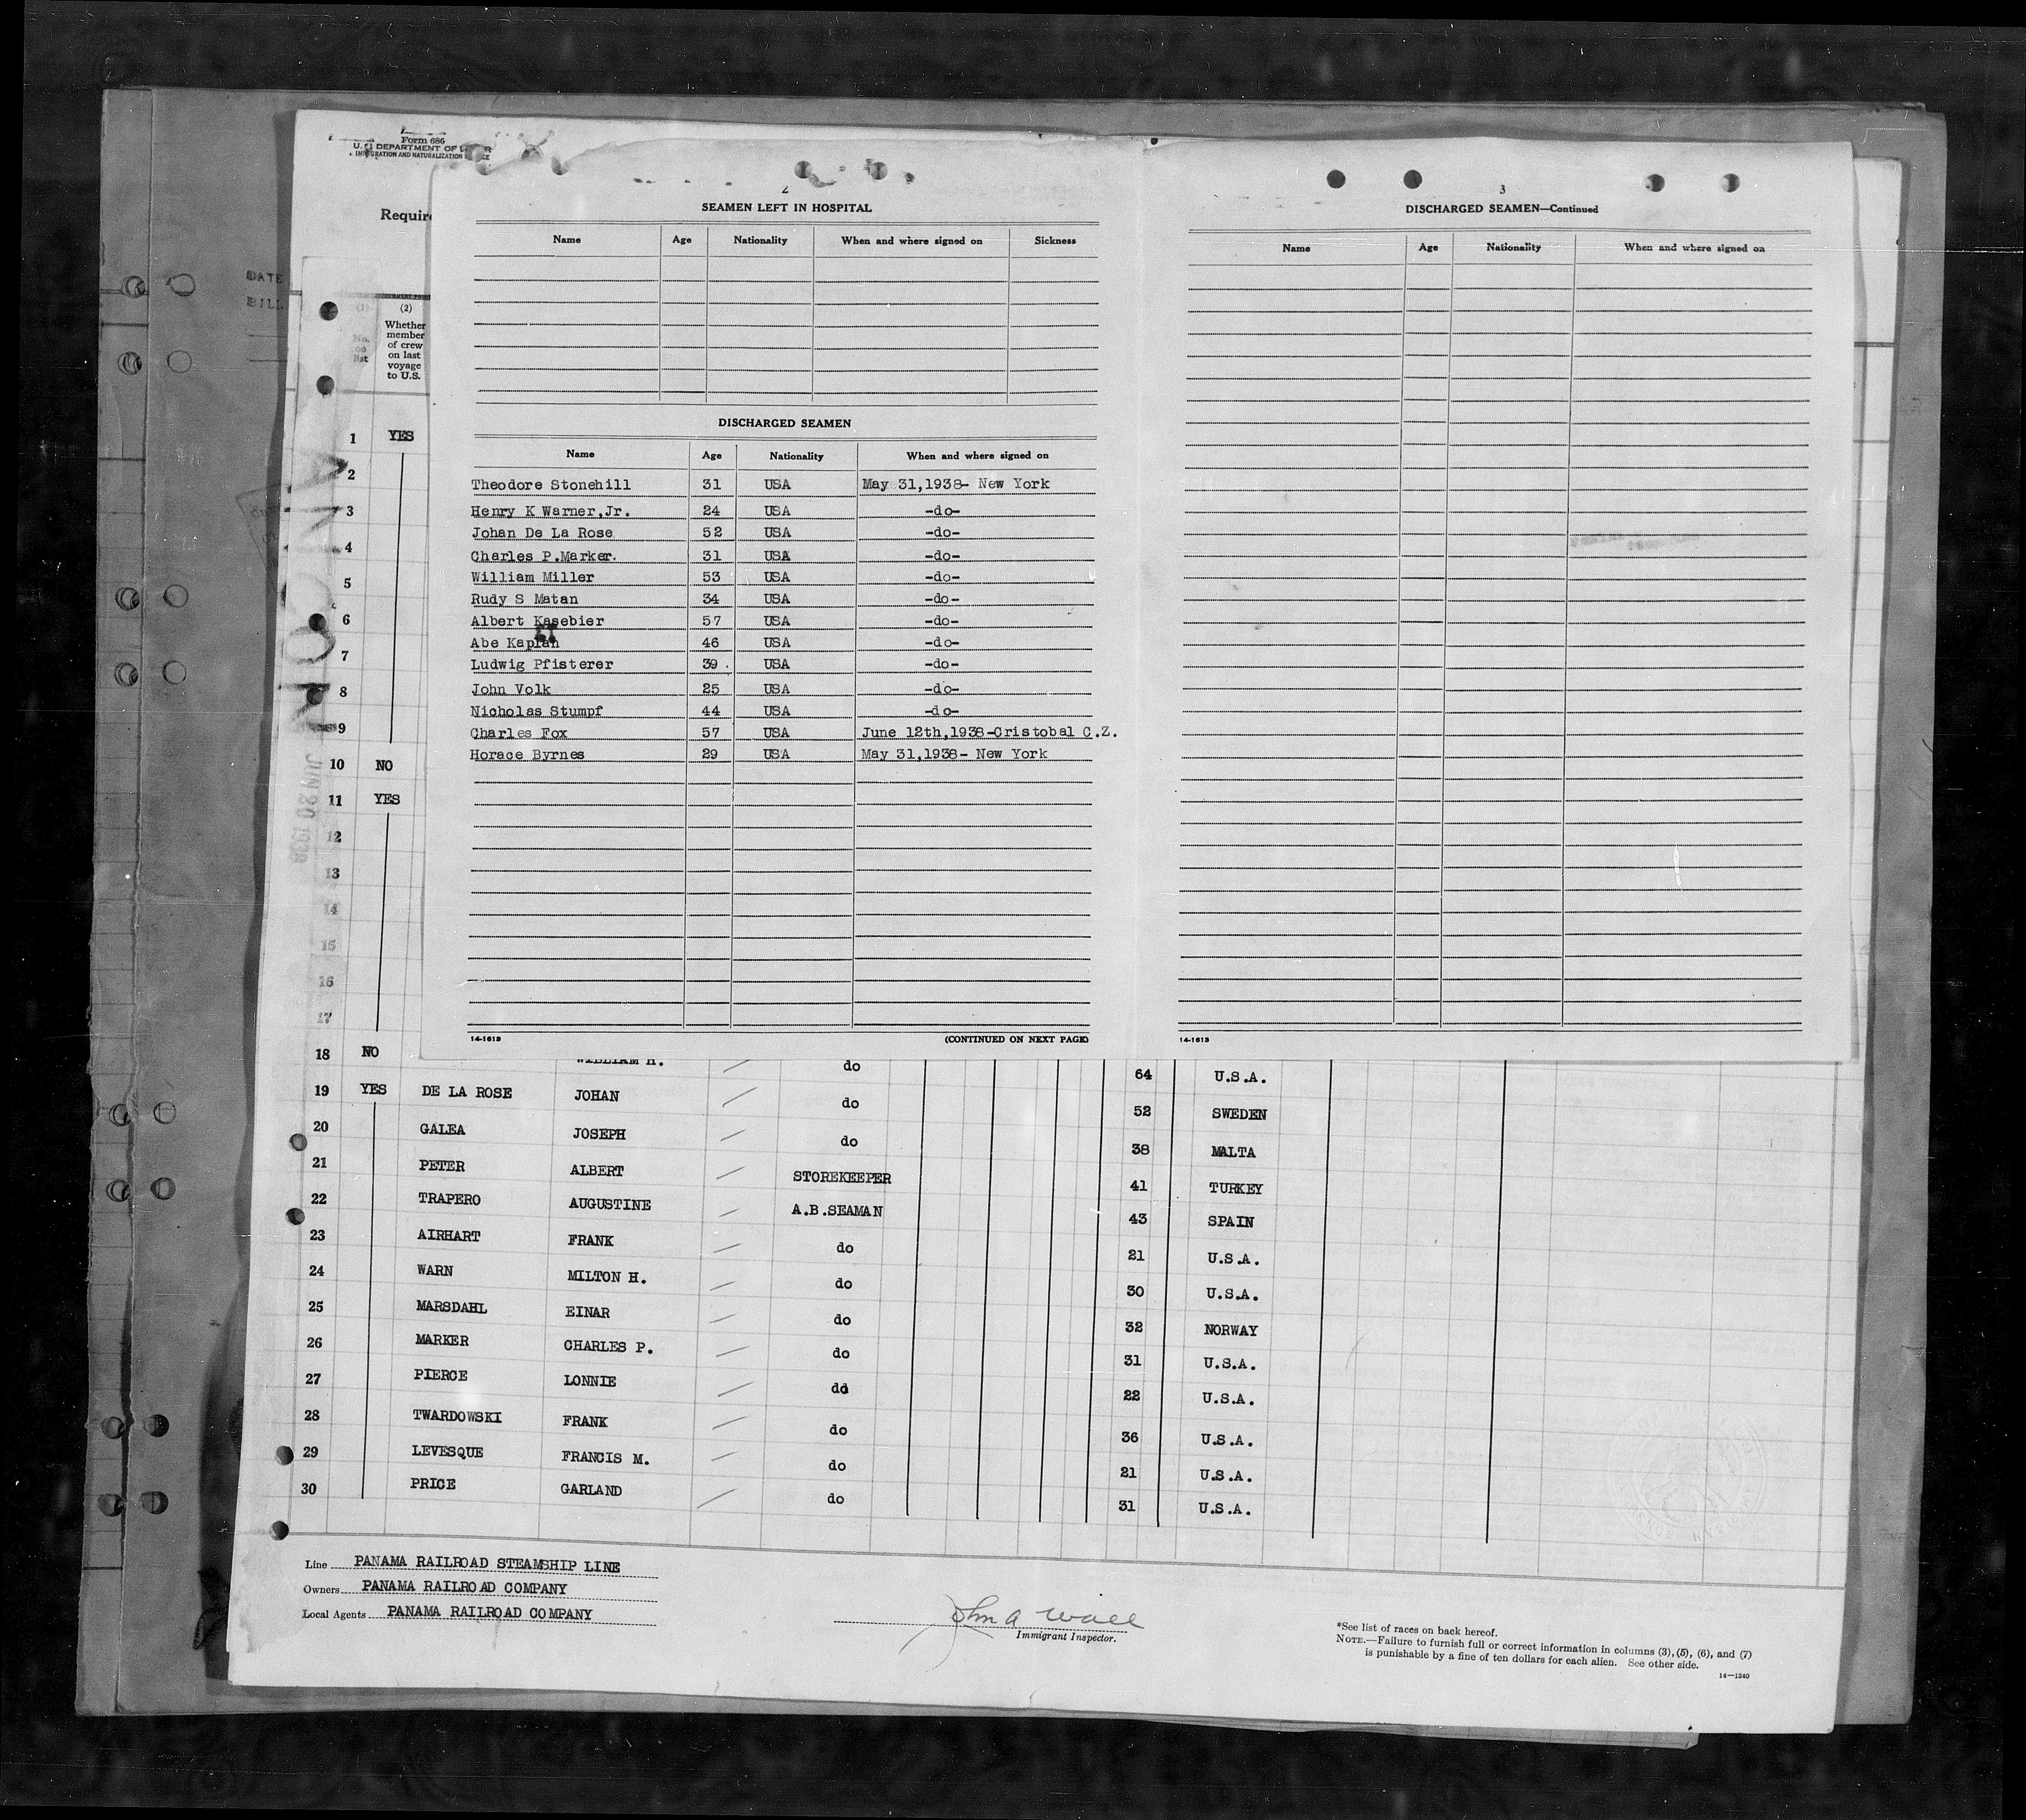 Form 686
U.S. DEPARTMENT OF
IMMIGRATION AND NATURALIZATION
DATE
BILL
(1)
No.
on
list
(2)
Whether
member
of crew
on last
voyage
to U.S.
2
SEAMEN LEFT IN HOSPITAL
Name Age Nationality When and where signed on Sickness
DISCHARGED SEAMEN
Name Age Nationality When and where signed on
Theodore Stonehill 31 USA May 31,1938- New York
Henry K Warner,Jr. 24 USA -do-
Johan De La Rose 52 USA -do-
Charles P.Marker. 31 USA -do-
William Miller 53 USA -do-
Rudy S Matan 34 USA -do-
Albert Kasebier 57 USA -do-
Abe Kaplan 46 USA -do-
Ludwig Pfisterer 39 . USA -do-
John Volk 25 USA -do-
Nicholas Stumpf 44 USA -do-
Charles Fox 57 USA June 12th,1938-Cristobal C.Z.
Horace Byrnes 29 USA May 31,1938- New York
14-1613 (CONTINUED ON NEXT PAGE)
3
DISCHARGED SEAMEN—Continued
Name Age Nationality When and where signed on
14-1613
1 YES
2
3
4
5
6
7
8
9
10 NO
11 YES
12
13
14
15
16
17
18 NO WILLIAM H. do 64 U.S.A.
19 YES DE LA ROSE JOHAN do 52 SWEDEN
20 GALEA JOSEPH do 38 MALTA
21 PETER ALBERT STOREKEEPER 41 TURKEY
22 TRAPERO AUGUSTINE A.B.SEAMAN 43 SPAIN
23 AIRHART FRANK do 21 U.S.A.
24 WARN MILTON H. do 30 U.S.A.
25 MARSDAHL EINAR do 32 NORWAY
26 MARKER CHARLES P. do 31 U.S.A.
27 PIERCE LONNIE do 22 U.S.A.
28 TWARDOWSKI FRANK do 36 U.S.A.
29 LEVESQUE FRANCIS M. do 21 U.S.A.
30 PRICE GARLAND do 31 U.S.A.
Line PANAMA RAILROAD STEAMSHIP LINE
Owners PANAMA RAILROAD COMPANY
Local Agents PANAMA RAILROAD COMPANY
John A Wall
Immigrant Inspector.
*See list of races on back hereof.
NOTE.—Failure to furnish full or correct information in columns (3), (5), (6), and (7)
is punishable by a fine of ten dollars for each alien. See other side.
14—1240